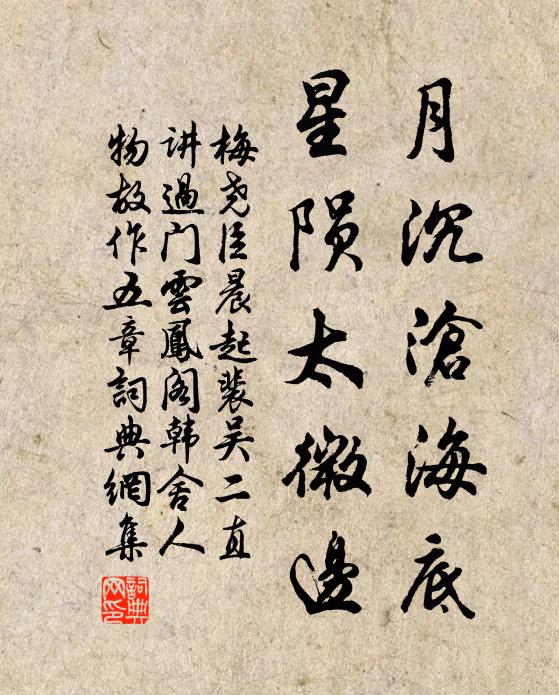 月沉滄海底
星陨太微邊
梅尧臣晨起裴吴二直
讲過门雲鳳阁韩舍人
物故作五章詞典網集
詞典网印